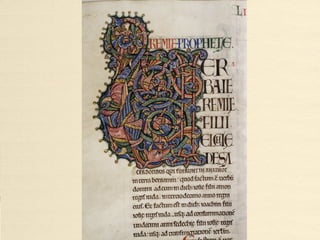 LI
REMIE PROPHETE.
ER
BA IE
REMIE
FILII
ELCIE
DE SA
CERDOTIBUS QUI FUERUNT IN ANATHOT
in terra beniamin; quod factum ē verbū
domini ad eum in dieb; iosie filii amon
regis iuda; in tertiodecimo anno regni
eius. Et factum est in dieb; ioachim filii
iosie regis iuda; usq; ad consummationē
undecimi anni sedechie filii iosie regis
iuda; usq; ad transmigrationē